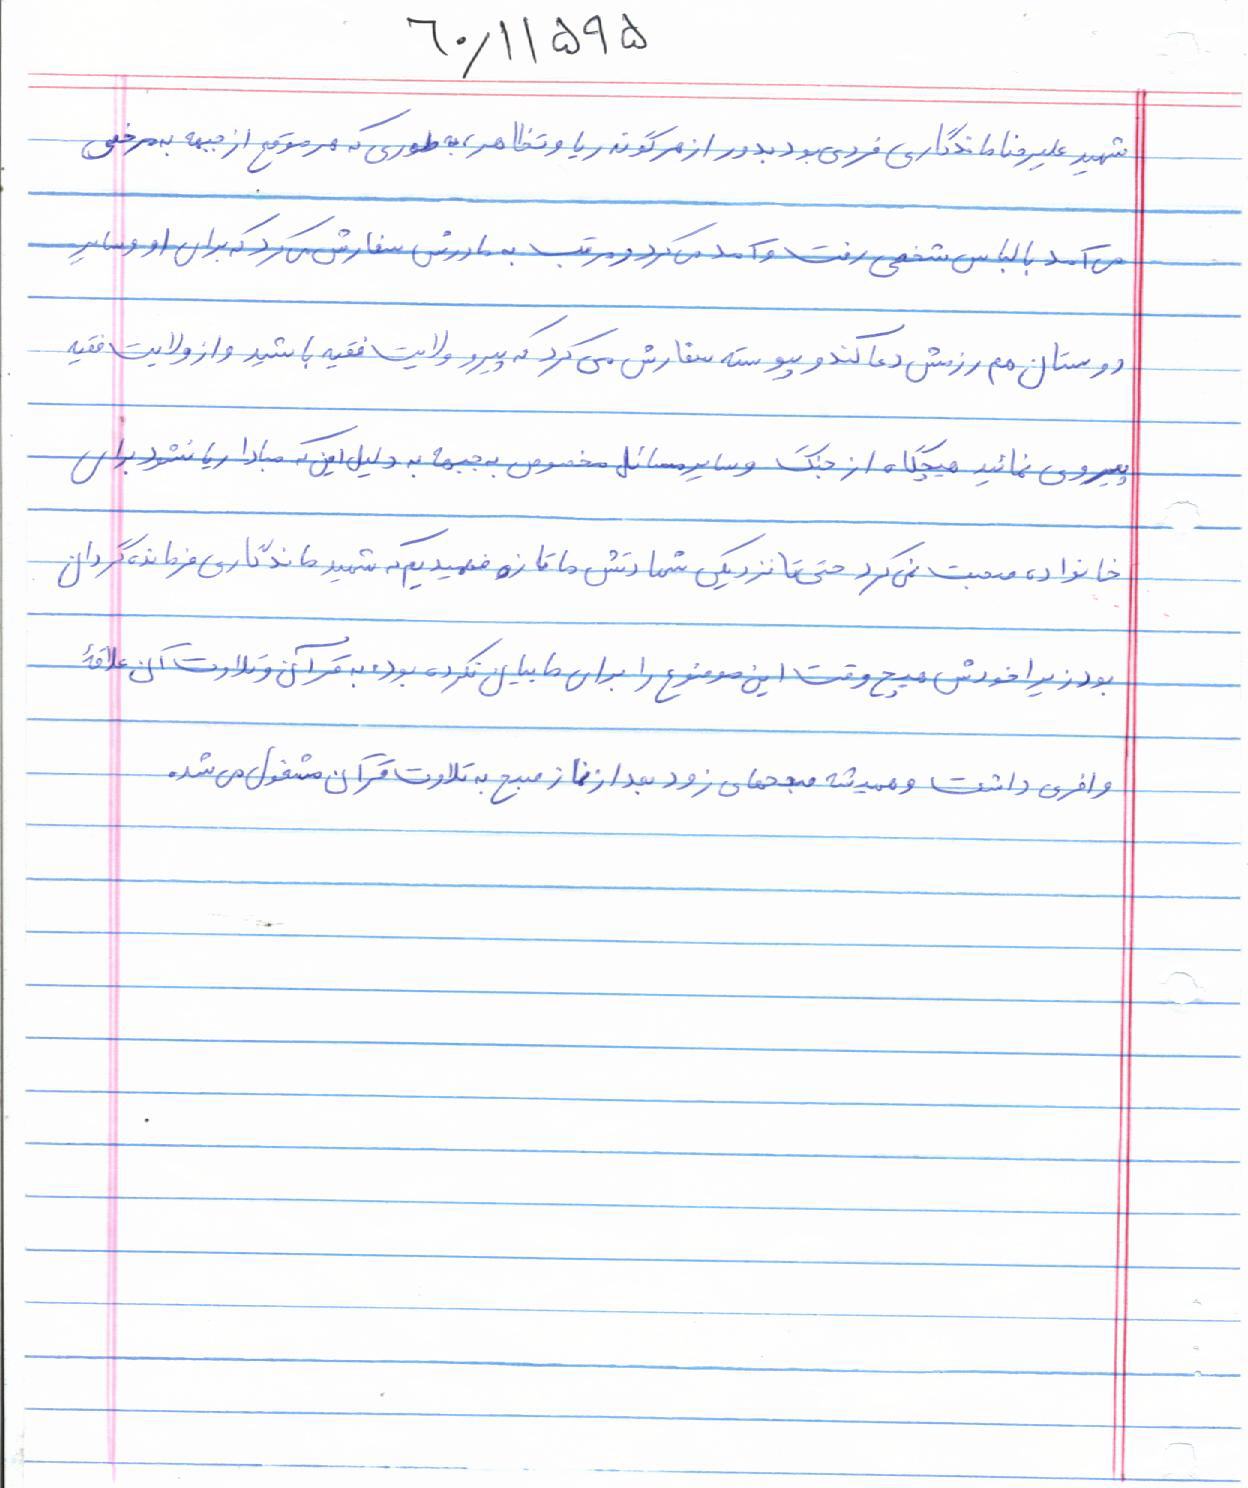 ۶۰/۱۱۵۹۵
شهید علیرضا ماندگاری فردی بود بدور از هرگونه ریا و تظاهر، به طوری که هر موقع از جبهه به مرخصی
می آمد با لباس شخصی رفت و آمد می کرد و مرتب به مادرش سفارش می کرد که برای او و سایر
دوستان هم رزمش دعا کند و پیوسته سفارش می کرد که پیرو ولایت فقیه باشید و از ولایت فقیه
پیروی نمائید هیچگاه از جنگ و سایر مسائل مخصوص به جبهه به دلیل این که مبادا ریا نشود برای
خانواده صحبت نمی کرد حتی تا نزدیکی شهادتش ما تازه فهمیدیم که شهید ماندگاری فرمانده گردان
بود زیرا خودش هیچ وقت این موضوع را برای ما بیان نکرده بود، به قرآن و تلاوت آن علاقهٔ
وافری داشت و همیشه صبحهای زود بعد از نماز صبح به تلاوت قرآن مشغول می شد.